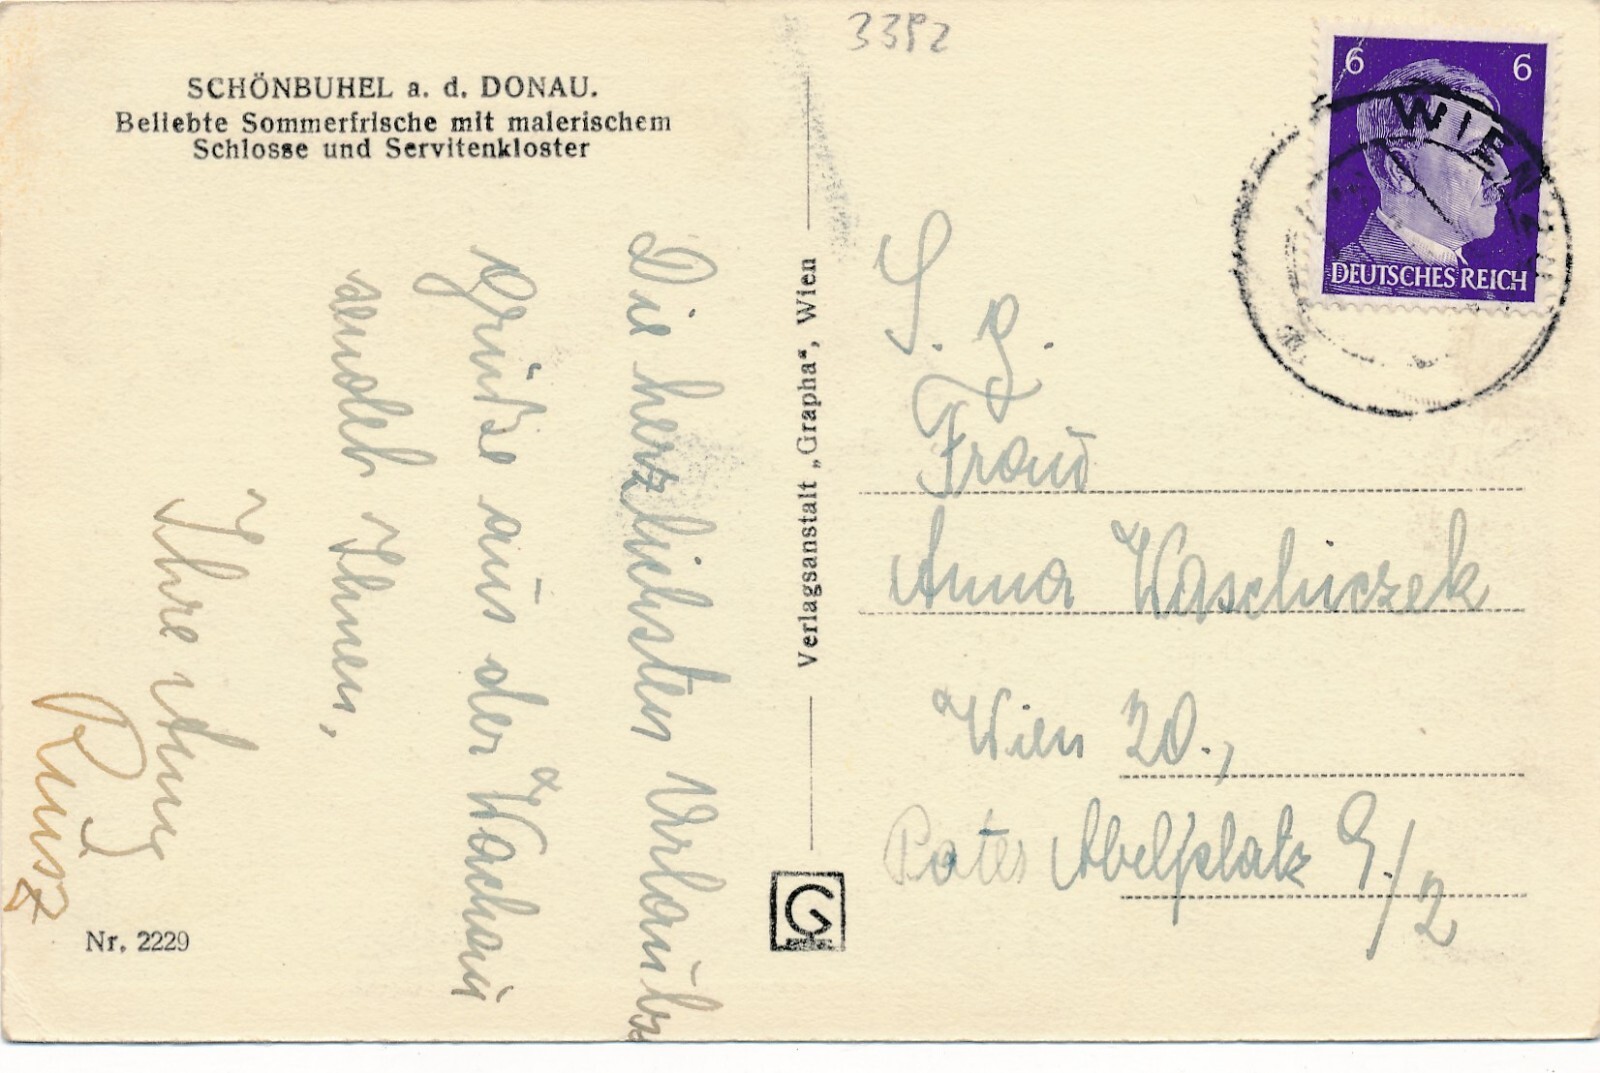 3392
SCHÖNBUHEL a. d. DONAU.
Beliebte Sommerfrische mit malerischem
Schlosse und Servitenkloster
Die herzlichsten Urlaubs
Grüße aus der Wachau
sendet Ihnen,
Ihre
Nr. 2229
Verlagsanstalt „Grapha“, Wien
G
6 6
DEUTSCHES REICH
WIEN
S. g.
Frau
Anna Waschiczek
Wien 20.,
Pater Abelplatz 9/2